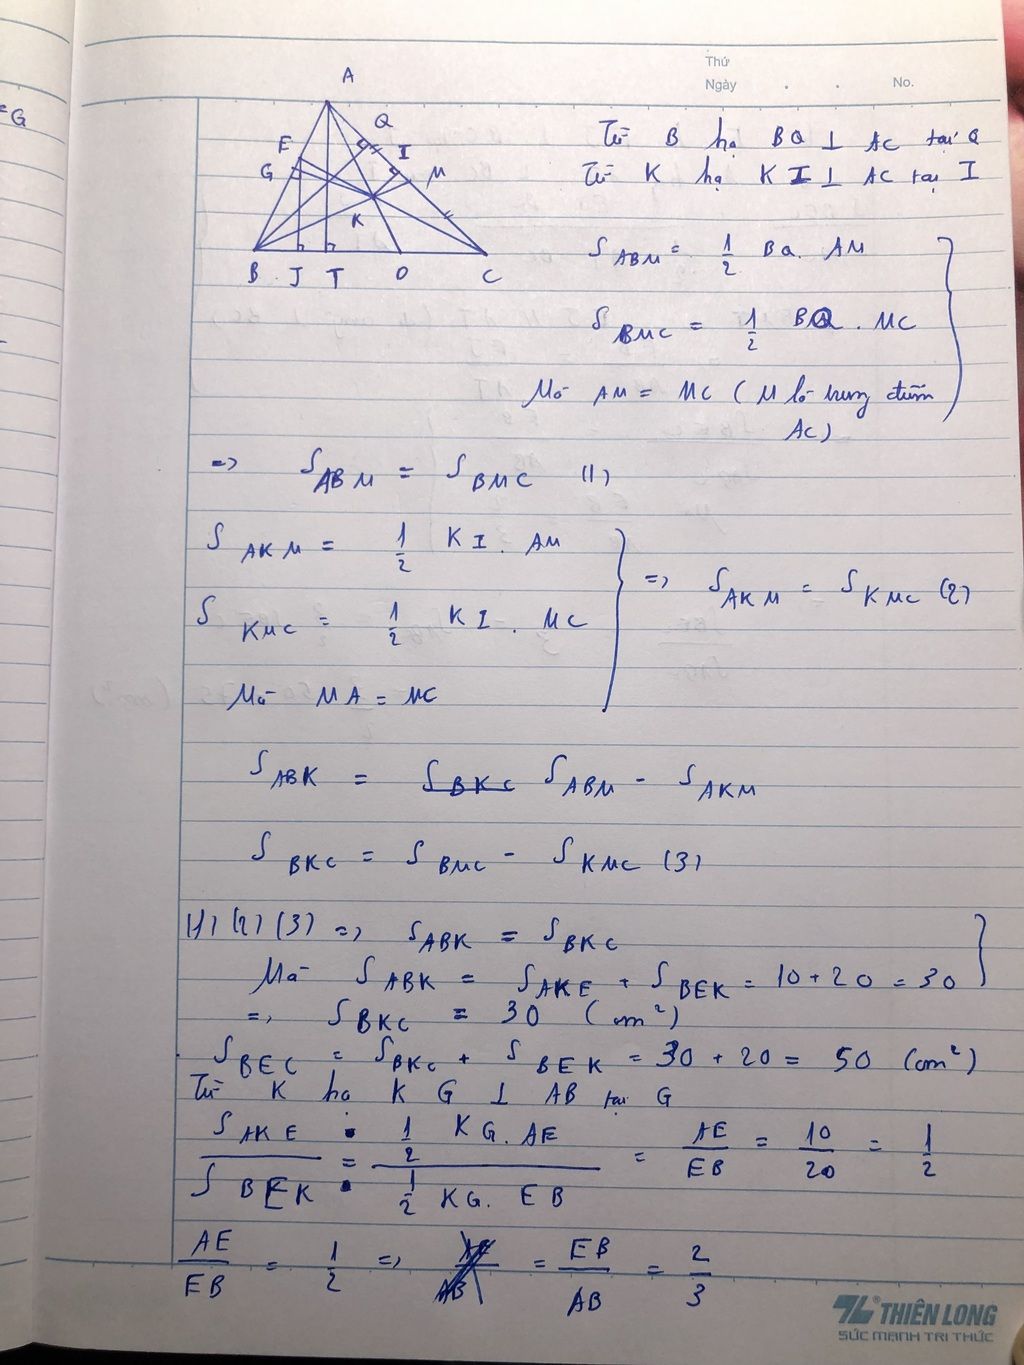 Thứ
Ngày . . No.
G
A
Q
E
I
G
M
K
B J T O C
Từ B hạ BQ ⊥ AC tại Q
Từ K hạ KI ⊥ AC tại I
S ABM = 1/2 BQ. AM
S BMC = 1/2 BQ . MC
Mà AM = MC ( M là trung điểm
AC)
=> S ABM = S BMC (1)
S AKM = 1/2 KI. AM
=> S AKM = S KMC (2)
S KMC = 1/2 KI. MC
Mà MA = MC
S ABK = S BKC S ABM - S AKM
S BKC = S BMC - S KMC (3)
(1) (2) (3) => S ABK = S BKC
Mà S ABK = S AKE + S BEK = 10 + 20 = 30
=> S BKC = 30 (cm²)
S BEC = S BKC + S BEK = 30 + 20 = 50 (cm²)
Từ K hạ KG ⊥ AB tại G
S AKE / S BEK = 1/2 KG. AE / 1/2 KG. EB = AE/EB = 10/20 = 1/2
AE/EB = 1/2 => = EB/AB = 2/3
THIÊN LONG
SỨC MẠNH TRI THỨC